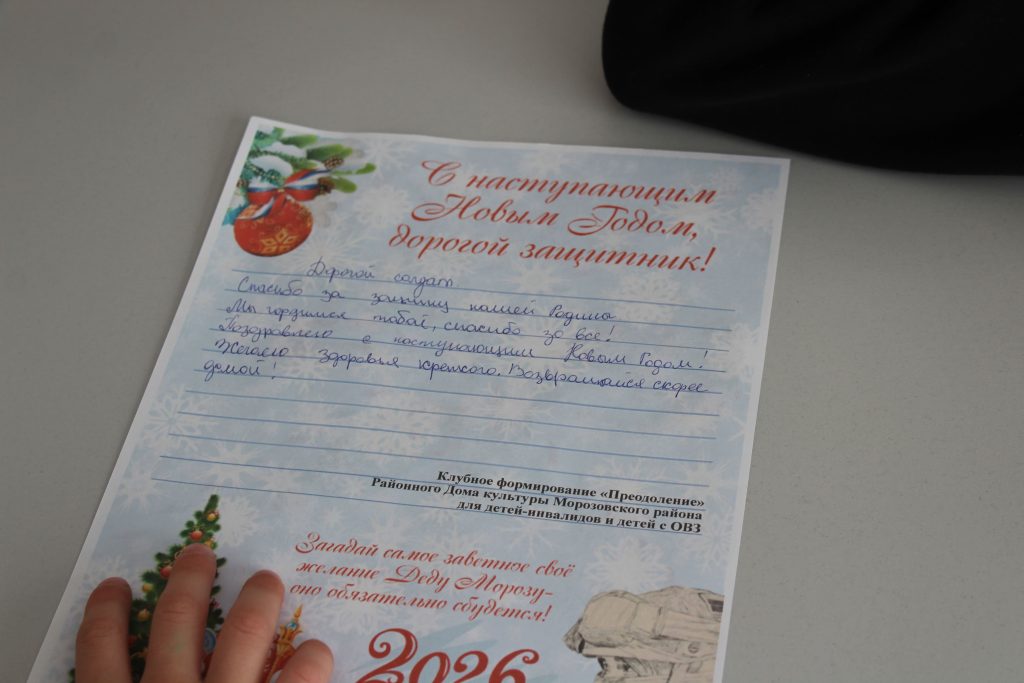 С наступающим
Новым Годом,
дорогой защитник!
Дорогой солдат.
Спасибо за защиту нашей Родины
Мы гордимся тобой, спасибо за все!
Поздравляю с наступающим Новым Годом!
Желаю здоровья крепкого. Возвращайся скорее
домой!
Клубное формирование «Преодоление»
Районного Дома культуры Морозовского района
для детей-инвалидов и детей с ОВЗ
Загадай самое заветное своё
желание Деду Морозу-
оно обязательно сбудется!
2026